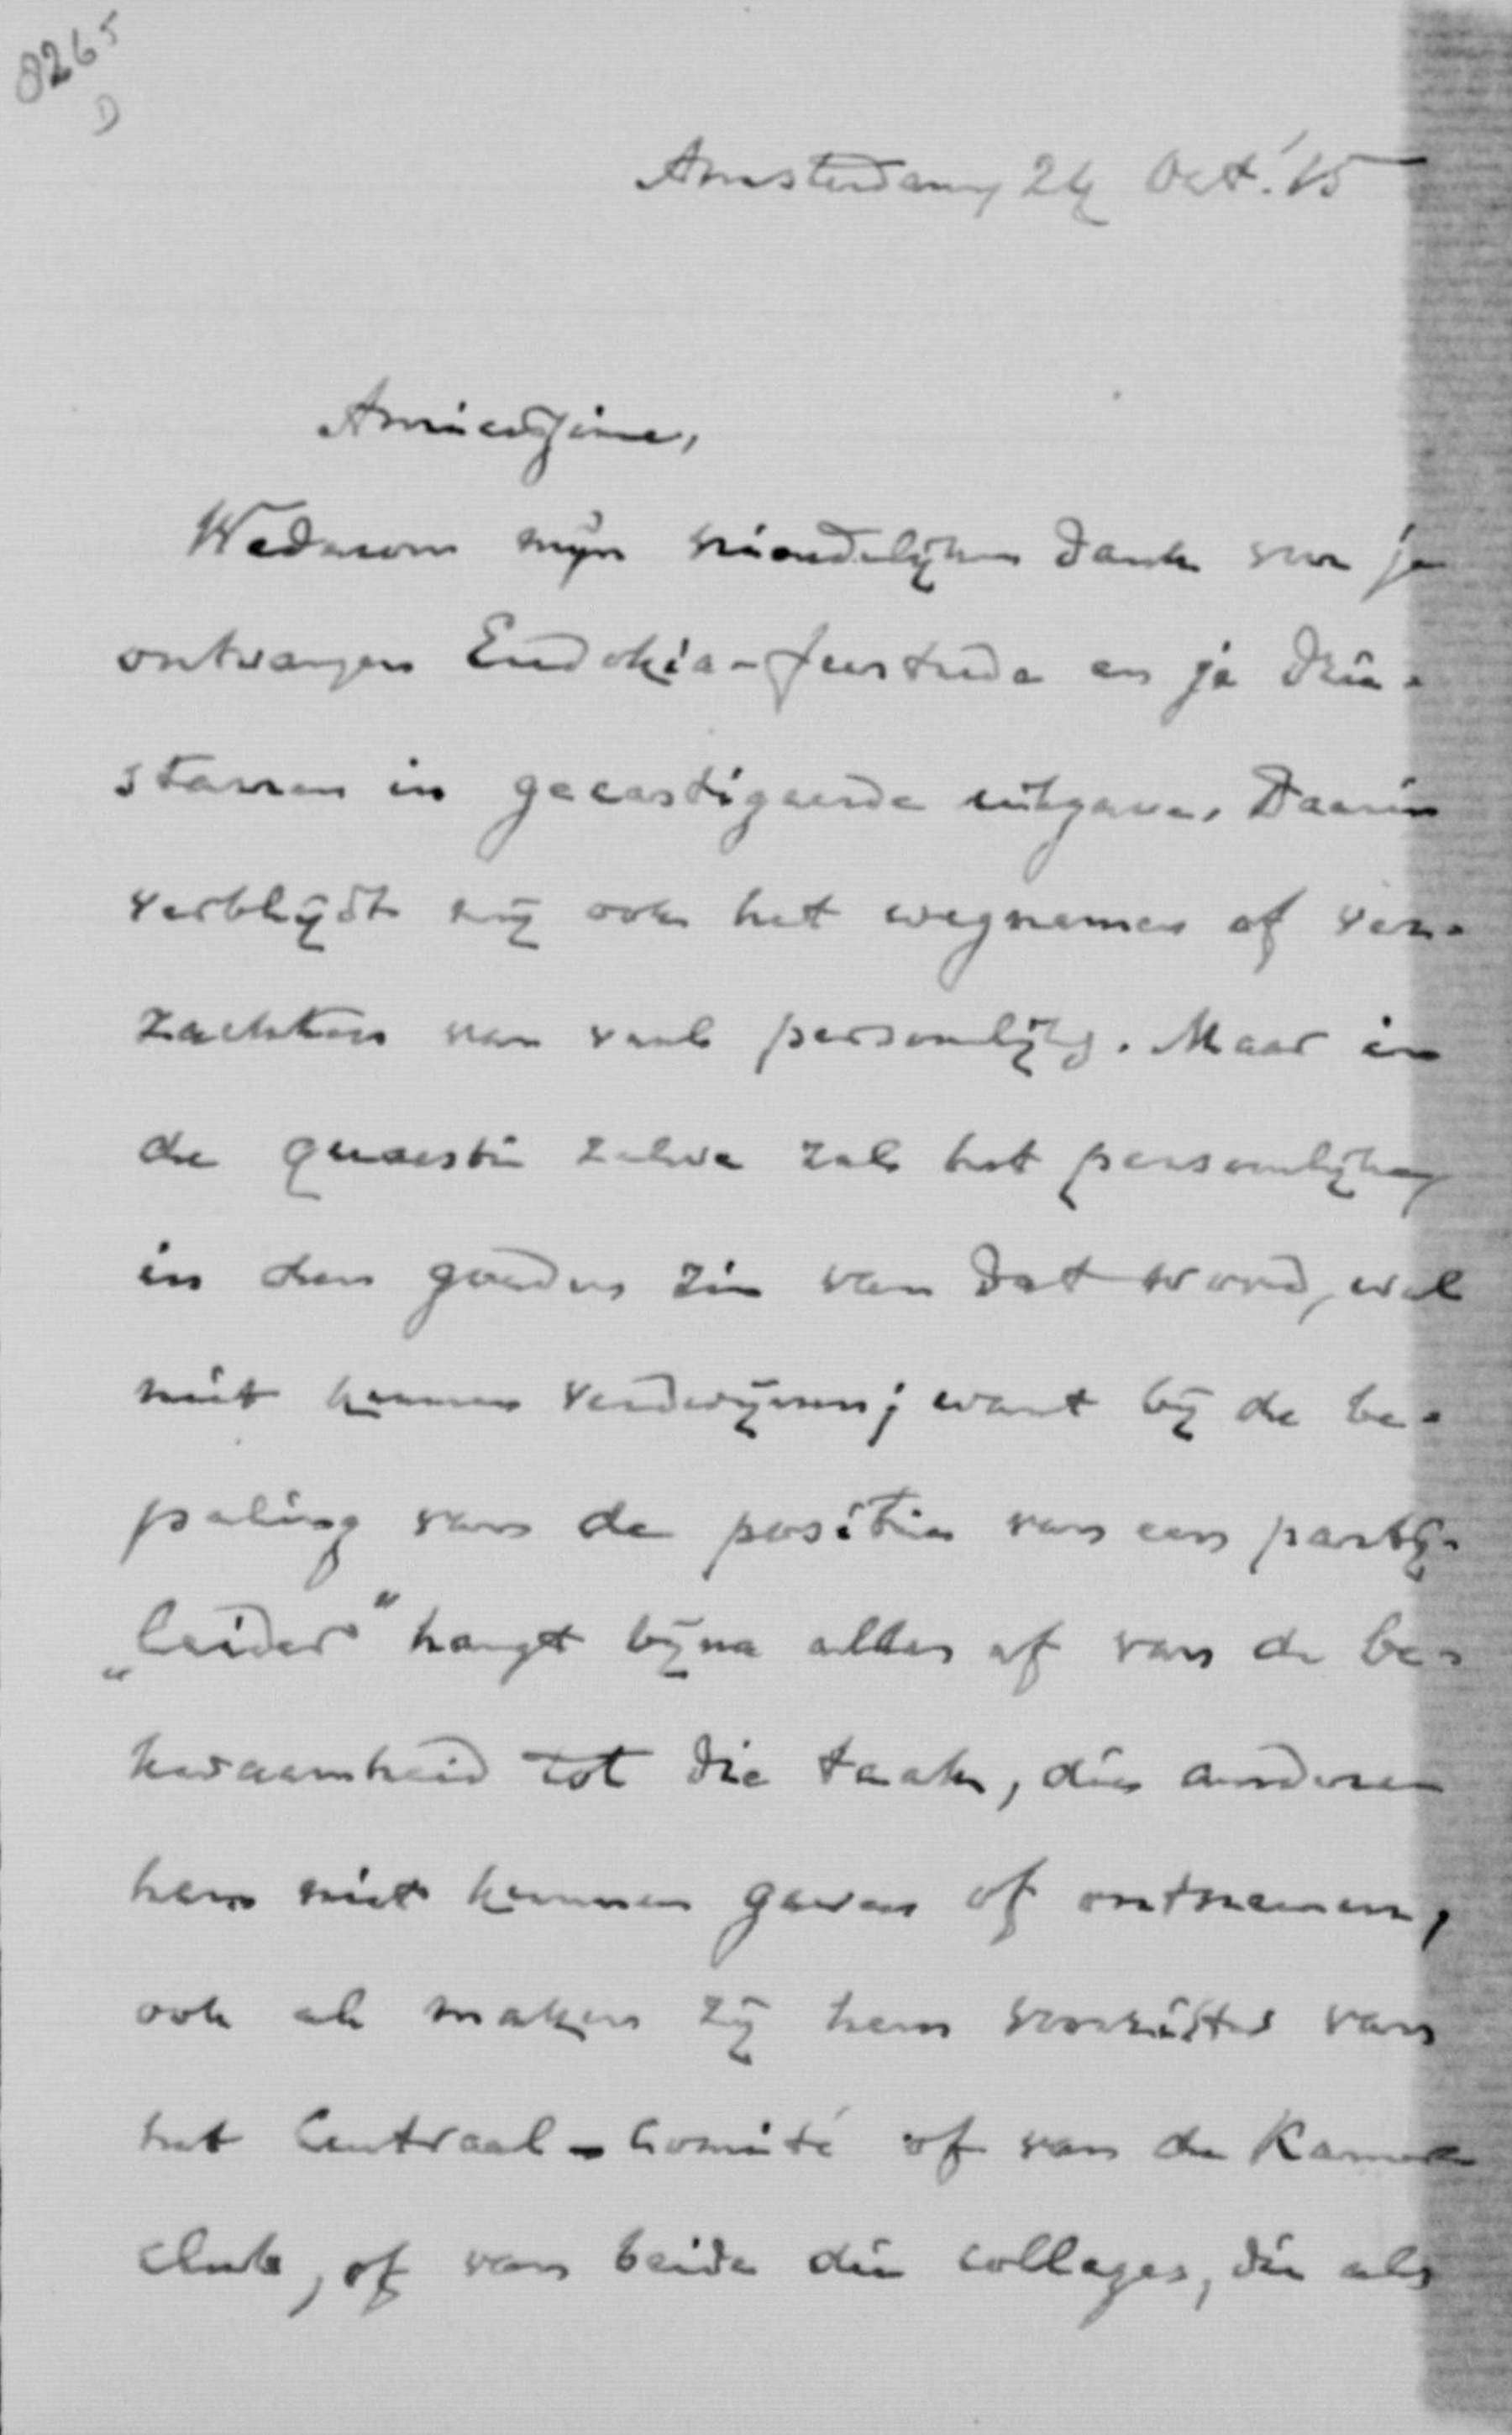 8265
D
Amsterdam 24 Oct. '15
Amicissime,
Wederom mijn vriendelijken dank voor je
ontvangen Eudokia-feestrede en je Drie-
starren in gecastigeerde uitgave. Daarin
verblijdt mij ook het wegnemen of ver-
zachten van veel persoonlijks. Maar in
de quaestie zelve zal het persoonlijke,
in den goeden zin van dat woord, wel
niet kunnen verdwijnen; want bij de be-
paling van de positie van een partij-
„leider" hangt bijna alles af van de be-
kwaamheid tot die taak, die anderen
hem niet kunnen geven of ontnemen,
ook al maken zij hem voorzitter van
het Centraal-Comité of van de Kamer
club, of van beide die colleges, die als